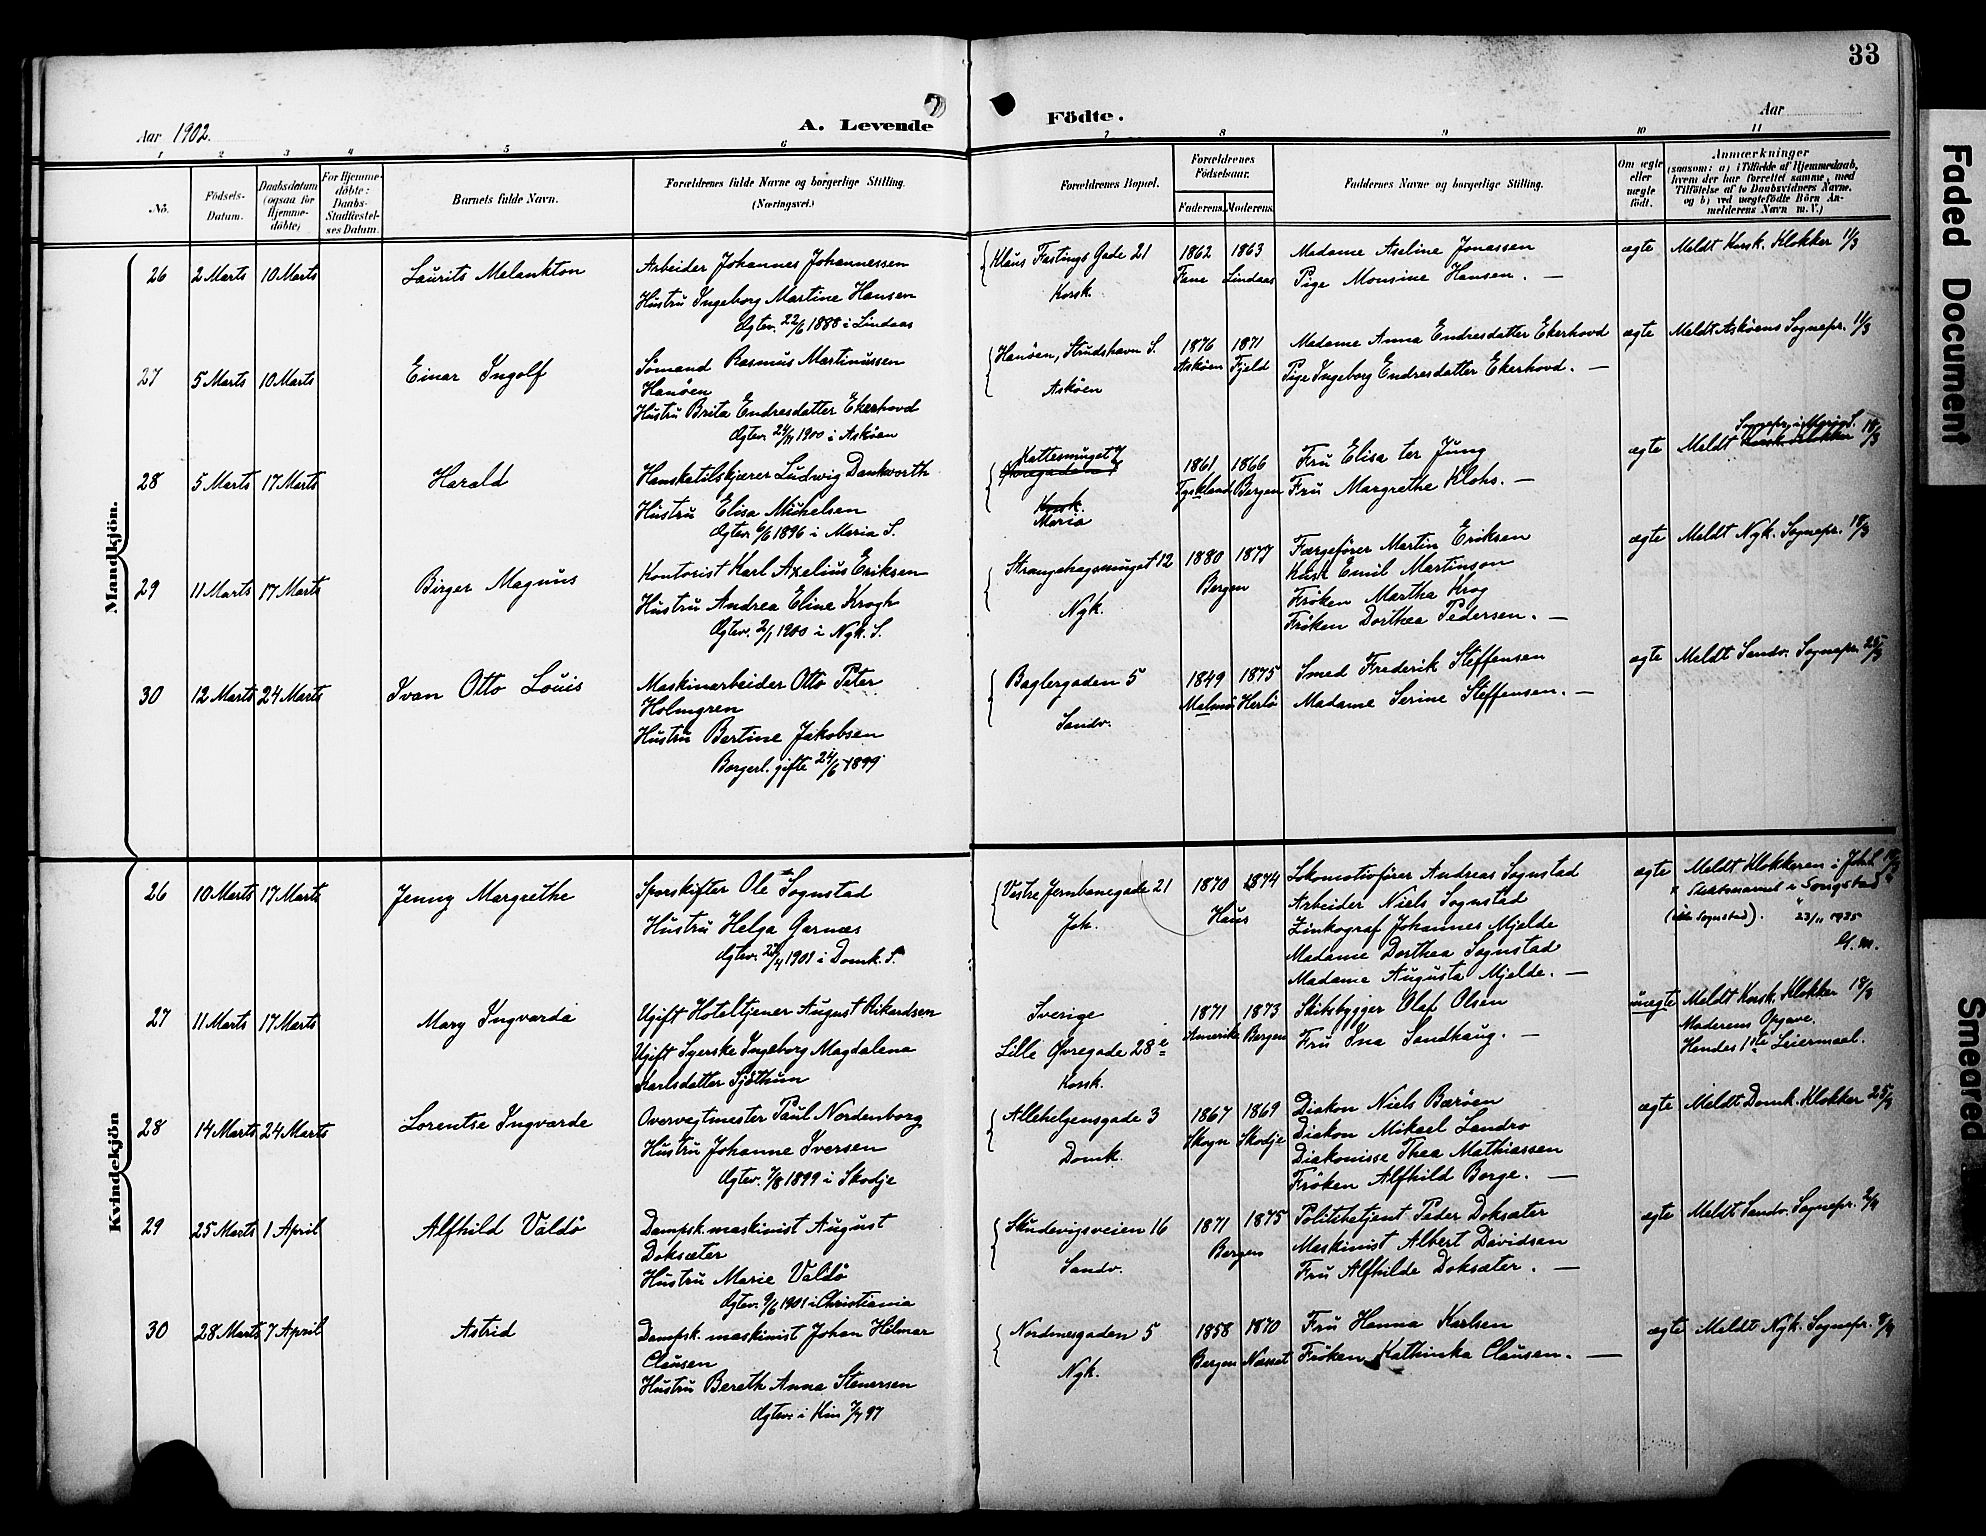 33
Aar 1902.
A. Levende
Födte.
Aar
1 2 3 4 5 6 7 8 9 10 11
No.
Födsels-
Datum.
Daabsdatum
(ogsaa for
Hjemme-
döbte)
For Hjemme-
döbte:
Daabs-
Stadfæstel-
ses Datum.
Barnets fulde Navn.
Forældrenes fulde Navne og borgerlige Stilling.
(Næringsvei.)
Forældrenes Bopæl.
Forældrenes
Födselsaar.
Faderens. Moderens.
Faddernes Navne og borgerlige Stilling.
Om ægte
eller
uægte
født.
Anmærkninger
(saasom: a) i Tilfælde af Hjemmedaab,
hvem der har forrettet samme, med
Tilföielse af to Daabsvidners Navne,
og b) ved uægtefödte Börn An-
melderens Navn m. V.)
Mandkjön.
26 2 Marts 10 Marts Laurits Melankton
Arbeider Johannes Johannessen
Hustru Ingeborg Martine Hansen
Ægtev. 22/6 1888 i Lindaas
Klaus Fastings Gade 21
Korsk.
1862 1863
Fane Lindaas
Madame Aseline Jonassen
Pige Monsine Hansen. —
ægte
Meldt Korsk. Klokker 11/3
27 5 Marts 10 Marts Einar Ingolf
Sömand Rasmus Martinussen
Hanöen
Hustru Brita Endresdatter Ekerhovd
Ægtev. 24/11 1900 i Asköen
Hanöen, Strudshavn S.
Asköen
1876 1871
Asköen Fjeld
Madame Anna Endresdatter Ekerhovd
Pige Ingeborg Endresdatter Ekerhovd. —
ægte
Meldt Asköens Sognepr. 11/3
28 5 Marts 17 Marts Harald
Hansketilskjærer Ludwig Dankworth
Hustru Elisa Michelsen
Ægtev. 6/6 1896 i Maria S.
Kattesmuget
Korsk.
Maria
1861 1866
Tyskland Bergen
Fru Elisa ter Jung
Fru Margrethe Klohs. —
ægte
Meldt Korsk. Klokker 18/3
29 11 Marts 17 Marts Birger Magnus
Kontorist Karl Axelius Eriksen
Hustru Andrea Eline Krogh
Ægtev. 2/1 1900 i Nyk. S.
Strangehagesmuget 12
Nyk.
1880 1877
Bergen
Færgefører Martin Eriksen
Kusk Emil Martinson
Frøken Martha Krog
Frøken Dorthea Pedersen. —
ægte
Meldt Nyk. Sognepr. 18/3
30 12 Marts 24 Marts Ivan Otto Louis
Maskinarbeider Otto Peter
Holmgren
Hustru Bertine Jakobsen
Borgerl. gifte 24/6 1899
Baglergaden 5
Sandv.
1849 1875
Malmö Herlö
Smed Frederik Steffensen
Madame Serine Steffensen. —
ægte
Meldt Sandv. Sognepr. 25/3
Kvindekjön
26 10 Marts 17 Marts Jenny Margrethe
Sporskifter Ole Sognstad
Hustru Helga Garnæs
Ægtev. 28/4 1901 i Domk. S.
Vestre Jernbanegade 21
Joh.
1870 1874
Haus
Lokomotivfører Andreas Sognstad
Arbeider Niels Sognstad
Zinkograf Johannes Mjelde
Madame Dorthea Sognstad
Madame Augusta Mjelde. —
ægte
Meldt Klokkeren i Joh. 18/3
x Slektsnavnet i Songstad
(ikke Sognstad). 23/11 1935
27 11 Marts 17 Marts Mary Ingvarda
Ugift Hoteltjener August Rikardsen
Ugift Syerske Ingeborg Magdalena
Karlsdatter Sjöthun
Sverige
Lille Øvregade 28
Korsk.
1871 1873
Amerika Bergen
Skibsbygger Olaf Olsen
Fru Ina Sandhaug. —
uægte
Meldt Korsk. Klokker 18/3
Moderens Opgave.
Hendes 1ste Leiermaal.
28 14 Marts 24 Marts Lorentse Ingvarde
Overvegtmester Paul Nordenborg
Hustru Johanne Iversen
Ægtev. 7/8 1899 i Skodje
Allehelgensgade 3
Domk.
1867 1869
Skogn Skodje
Diakon Niels Baröen
Diakon Mikael Landro
Diakonisse Thea Mathiassen
Frøken Alfhild Borge. —
ægte
Meldt Domk. Klokker 25/3
29 25 Marts 1 April Alfhild Valdö
Dampsk. maskinist August
Doksæter
Hustru Marie Valdö
Ægtev. 9/6 1901 i Christiania
Skudevigsveien 16
Sandv.
1871 1875
Bergen
Politibetjent Peder Doksæter
Maskinist Albert Davidsen
Fru Alfhilde Doksæter. —
ægte
Meldt Sandv. Sognepr. 2/4
30 28 Marts 7 April Astrid
Dampsk. maskinist Johan Hilmar
Clausen
Hustru Bereth Anna Stenersen
Ægtev. i Kinn 7/7 97
Nordnesgaden 5
Nyk.
1858 1870
Bergen Næsset
Fru Hanna Karlsen
Frøken Kathinka Clausen. —
ægte
Meldt Nyk. Sognepr. 8/4
Faded Document
Smeared